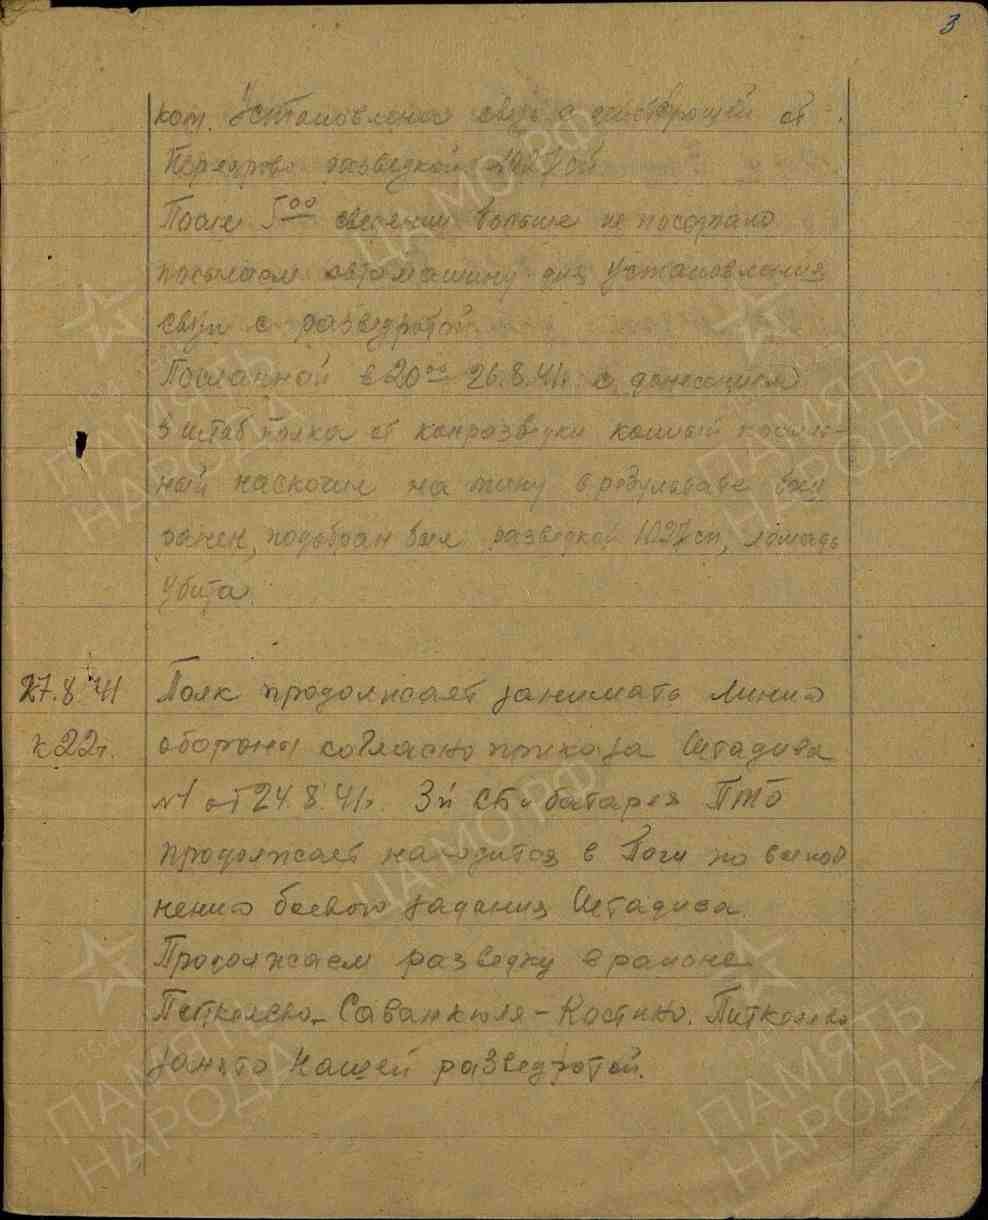 3
кой. Установлена связь с действующей от
разведкой 1027 сп
После 5⁰⁰ сведений больше не поступало
посылаем автомашину для установления
связи с разведротой.
Посланной в 20⁰⁰ 26.8.41г. с донесением
в штаб полка от конразведки конный посыль-
ный наскочил на мину в результате был
ранен, подобран был разведкой 1027 сп, лошадь
убита.
27.8.41 Полк продолжает занимать линию
к 22ч. обороны согласно приказа Штадива
№1 от 24.8.41г. 3й СБ и батарея ПТО
продолжает находится в по выпол
нению боевого задания Штадива.
Продолжаем разведку в районе
Питкелево - Саванкюля - Костико. Питкелево
занято нашей разведротой.
ПАМЯТЬ НАРОДА
ЦАМО РФ
ПАМЯТЬ НАРОДА
ПАМЯТЬ НАРОДА
ЦАМО РФ
ПАМЯТЬ НАРОДА